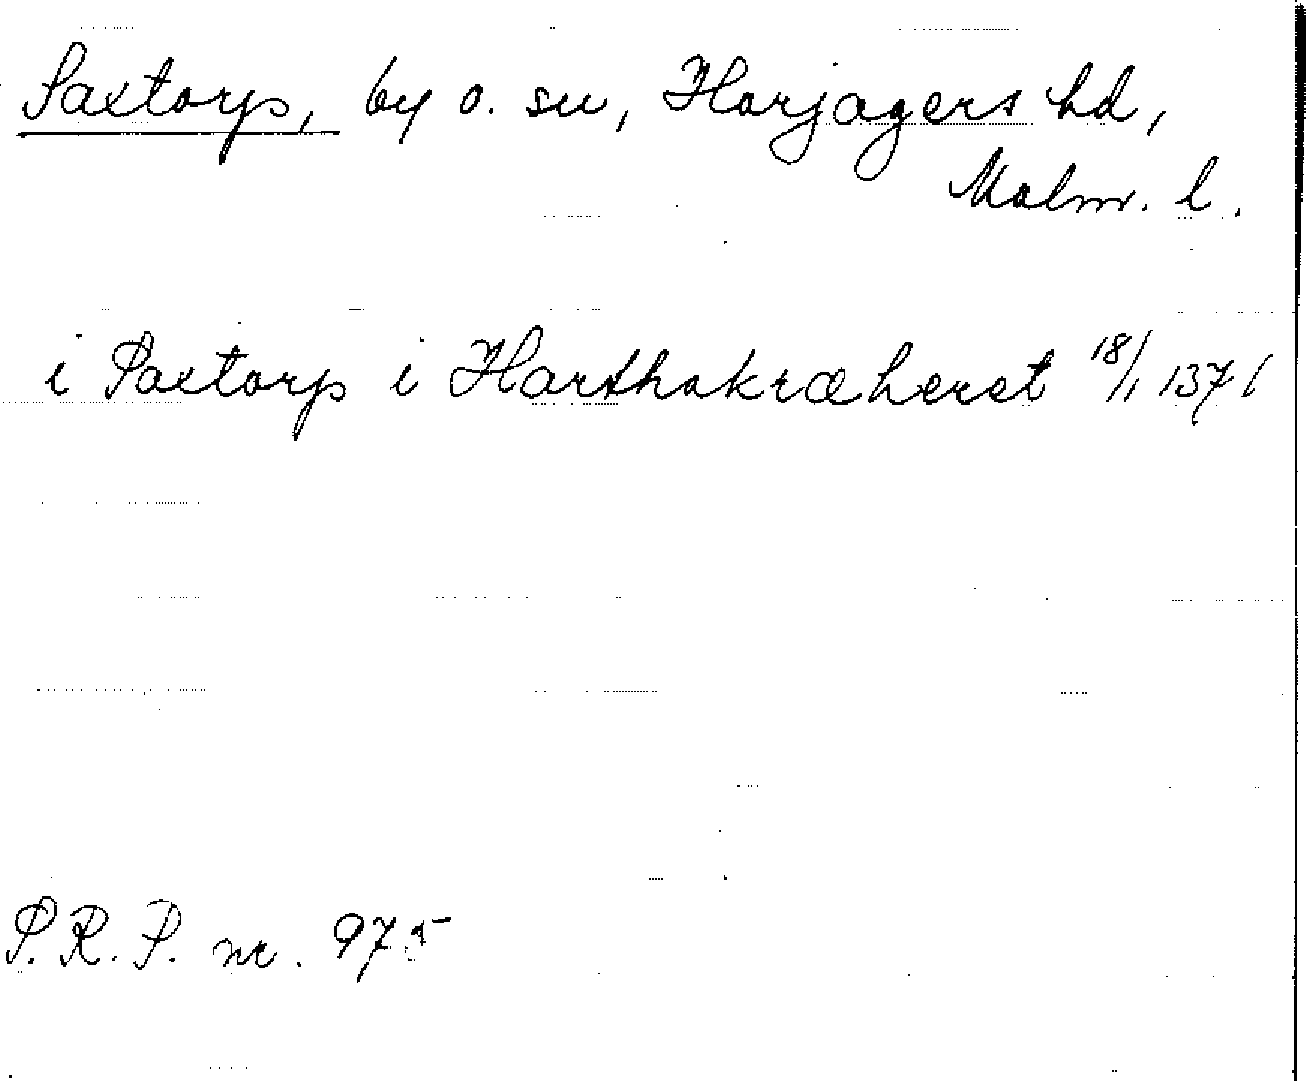 Saxtorp, by o. sn, Harjagers hd,
Malm. l.
i Saxtorp i Harthakræheret 18/1 1371
S.R.P. nr. 975